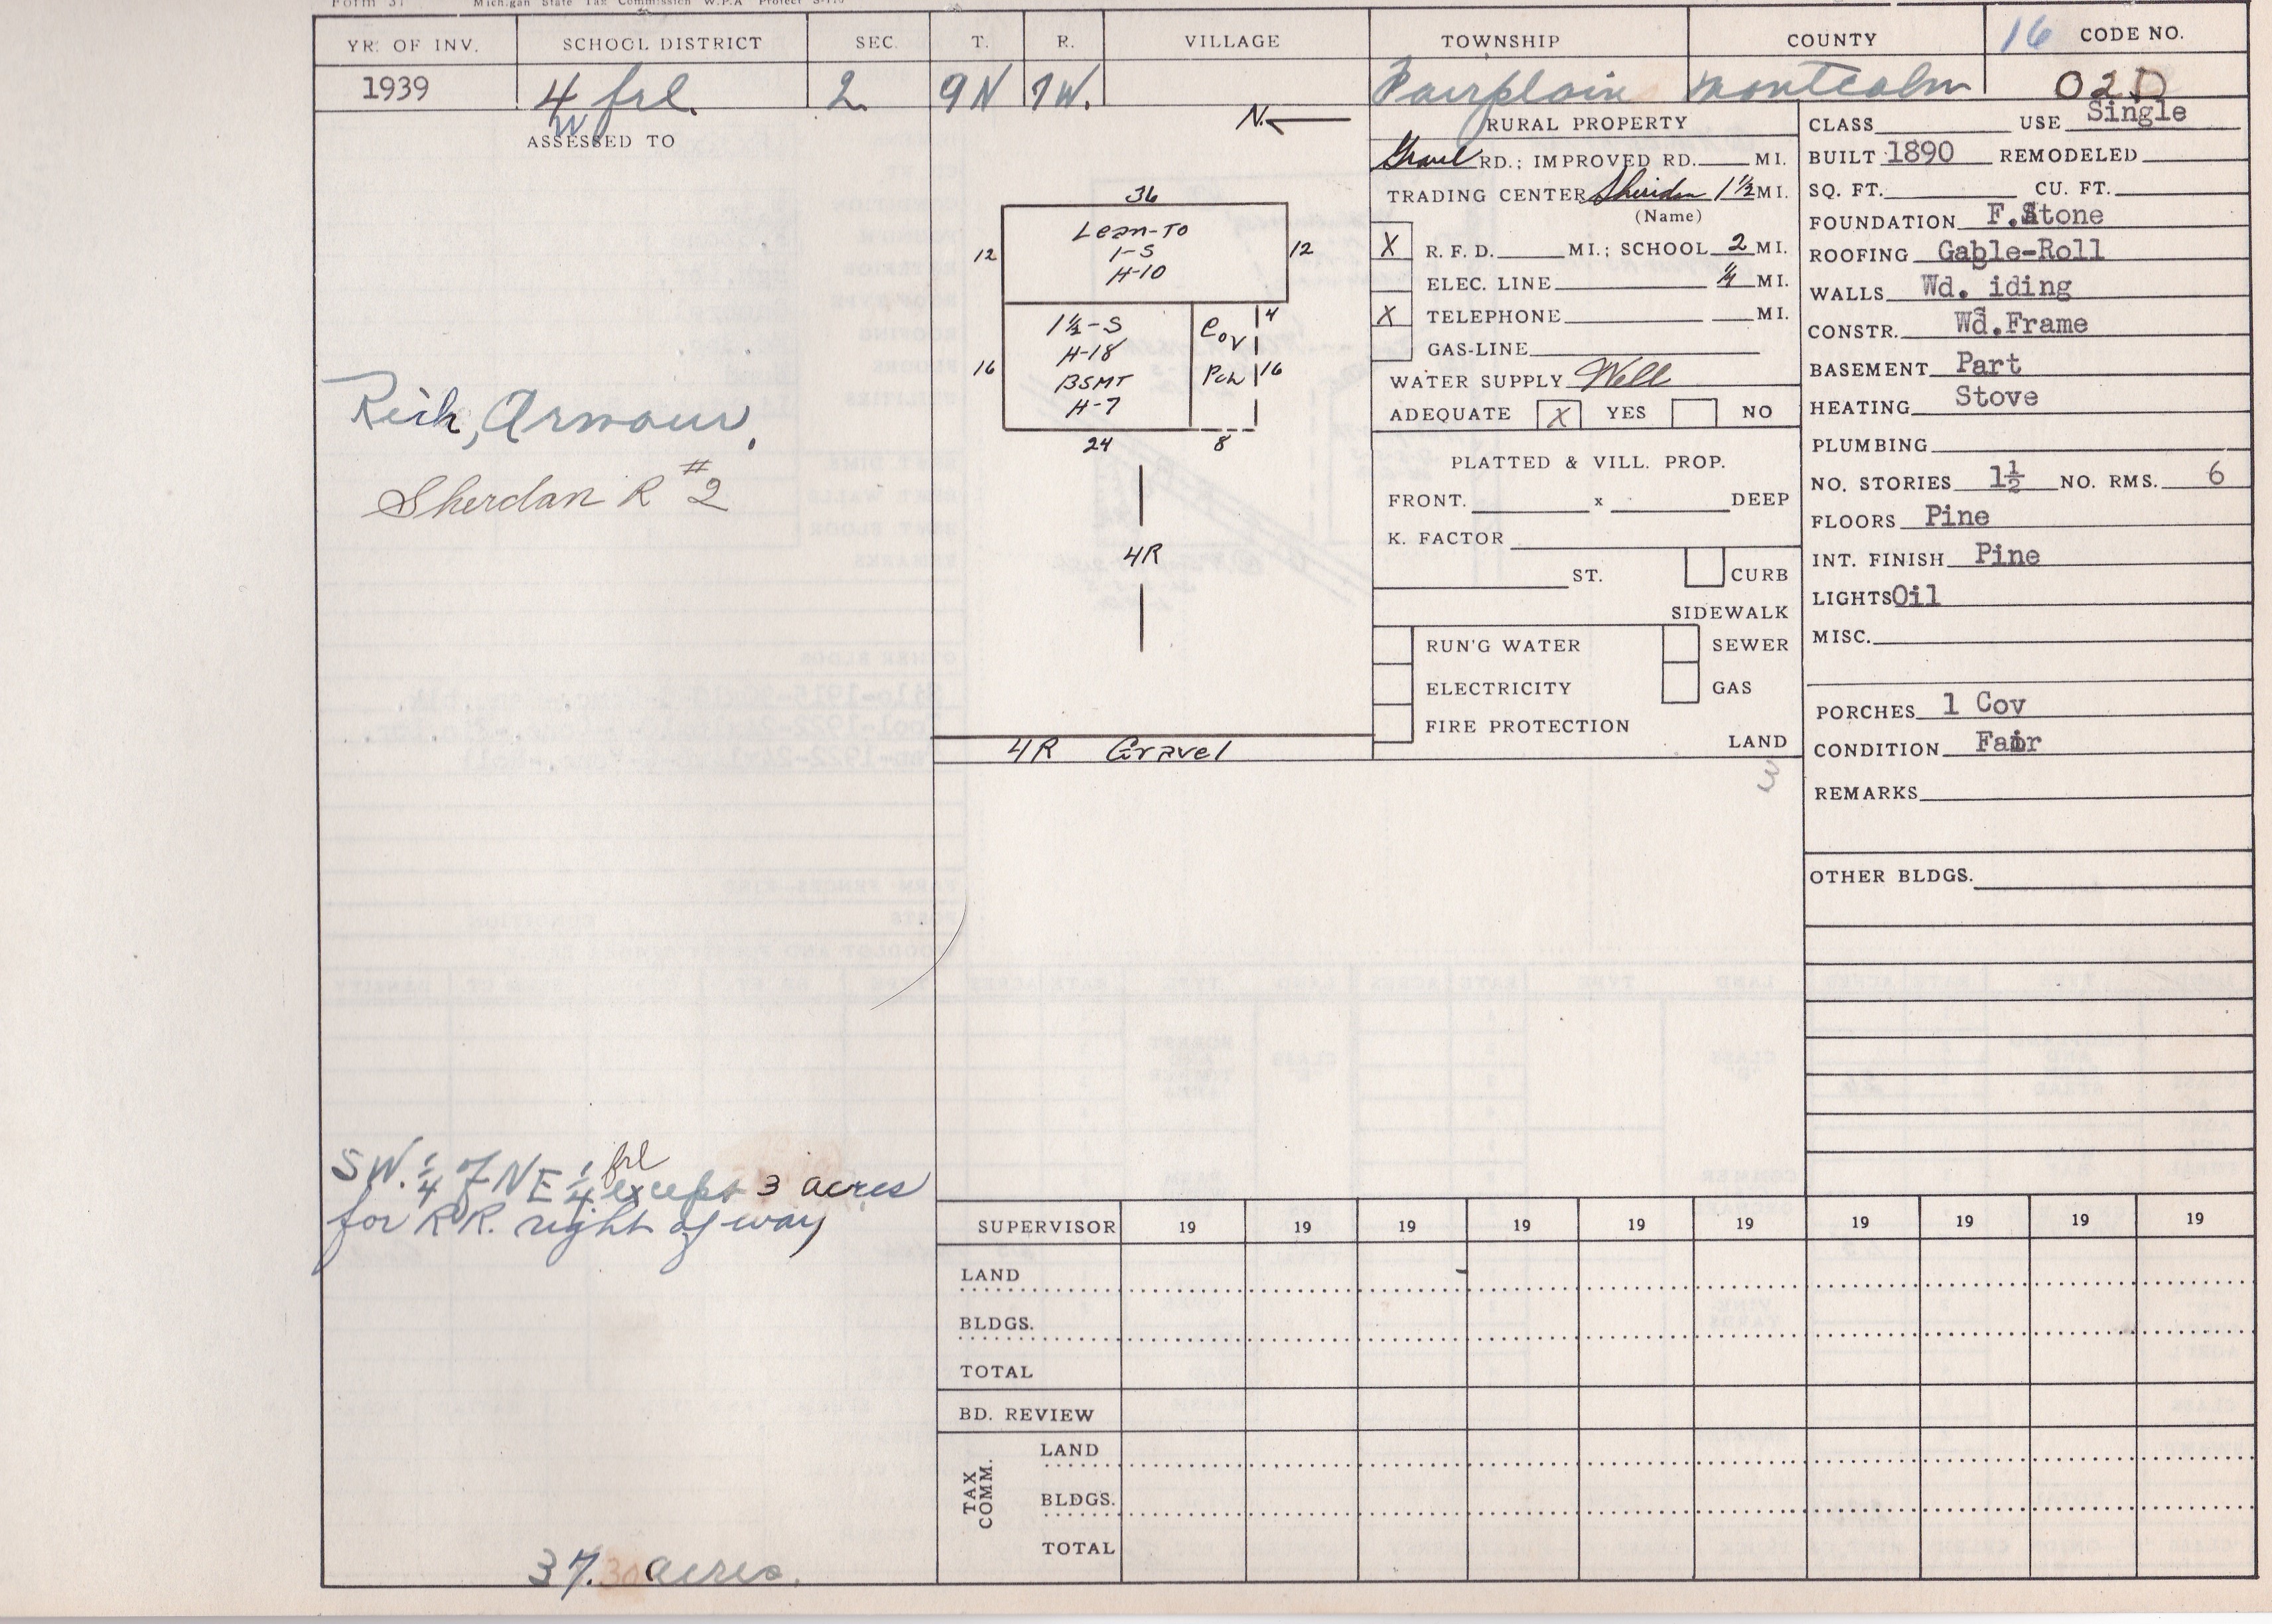 Form 37 Michigan State Tax Commission W.P.A Project
YR. OF INV. SCHOOL DISTRICT SEC. T. R. VILLAGE TOWNSHIP COUNTY 16 CODE NO.
1939 4 frl. 2 9N 7W. Fairplain Montcalm 02D
ASSESSED TO
Rich, Armour.
Sherdan R #2
SW. 1/4 of NE 1/4 frl except 3 acres
for R.R. right of way
37.30 acres.
N.
36
12 Lean-To 12
1-S
H-10
1½-S
H-18
BSMT
H-7
Cov
Pch
4
16 16
24 8
4R
4R Gravel
RURAL PROPERTY
Gravel RD.; IMPROVED RD. MI.
TRADING CENTER Sheridan 1½ MI.
(Name)
X R. F. D. MI.; SCHOOL 2 MI.
ELEC. LINE ¼ MI.
X TELEPHONE MI.
GAS-LINE
WATER SUPPLY Well
ADEQUATE X YES NO
PLATTED & VILL. PROP.
FRONT. x DEEP
K. FACTOR
ST. CURB
SIDEWALK
RUN'G WATER SEWER
ELECTRICITY GAS
FIRE PROTECTION
LAND
3
CLASS USE Single
BUILT 1890 REMODELED
SQ. FT. CU. FT.
FOUNDATION F.Stone
ROOFING Gable-Roll
WALLS Wd. iding
CONSTR. Wd.Frame
BASEMENT Part
HEATING Stove
PLUMBING
NO. STORIES 1½ NO. RMS. 6
FLOORS Pine
INT. FINISH Pine
LIGHTS Oil
MISC.
PORCHES 1 Cov
CONDITION Fair
REMARKS
OTHER BLDGS.
SUPERVISOR 19 19 19 19 19 19 19 19 19 19
LAND
BLDGS.
TOTAL
BD. REVIEW
TAX COMM.
LAND
BLDGS.
TOTAL